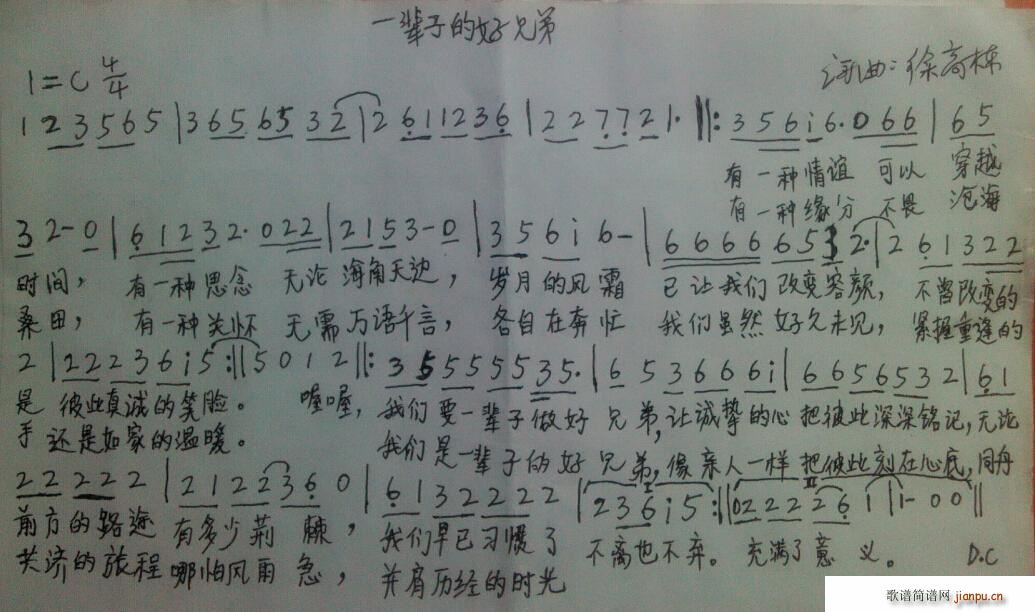 一辈子的好兄弟
1=C 4/4
词曲:徐高栋
1 2 3 5 6 5 | 3 6 5 6 5 3 2 | 2 6 1 1 2 3 6 | 2 2 7 7 2 1· ‖: 3 5 6 i 6· 0 6 6 | 6 5
有一种情谊 可以 穿越
有一种缘分 不畏 沧海
3 2 - 0 | 6 1 2 3 2· 0 2 2 | 2 1 5 3 - 0 | 3 5 6 i 6 - | 6 6 6 6 6 5 3 2· | 2 6 1 3 2 2
时间, 有一种思念 无论 海角天边, 岁月的风霜 已让我们改变容颜, 不曾改变的
桑田, 有一种关怀 无需 万语千言, 各自在奔忙 我们虽然好久未见, 紧握重逢的
2 | 2 2 2 3 6 i 5 :‖ 5 0 1 2 ‖: 3 5 5 5 5 5 3 5· | 6 5 3 6 6 6 i | 6 6 5 6 5 3 2 | 6 1
是 彼此真诚的笑脸。 喔喔, 我们要一辈子做好兄弟,让诚挚的心把彼此深深铭记,无论
手 还是如家的温暖。 我们是一辈子的好兄弟,像亲人一样把彼此刻在心底,同舟
2 2 2 2 2 | 2 1 2 2 3 6 0 | 6 1 3 2 2 2 2 | I 2 3 6 i 5 :‖ II 0 2 2 2 2 6 1 | 1 - 0 0 ‖
前方的路途 有多少荆棘, 我们早已习惯了 不离也不弃。 充满了意义。 D.C
共济的旅程 哪怕风雨急, 并肩历经的时光
歌谱简谱网 jianpu.cn